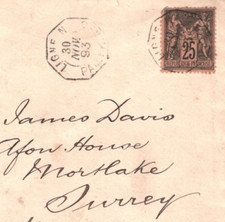 LIGNE N
30
NOV
93
PA
LIGNE
25
James Davis
Yfon House
Mortlake
Surrey